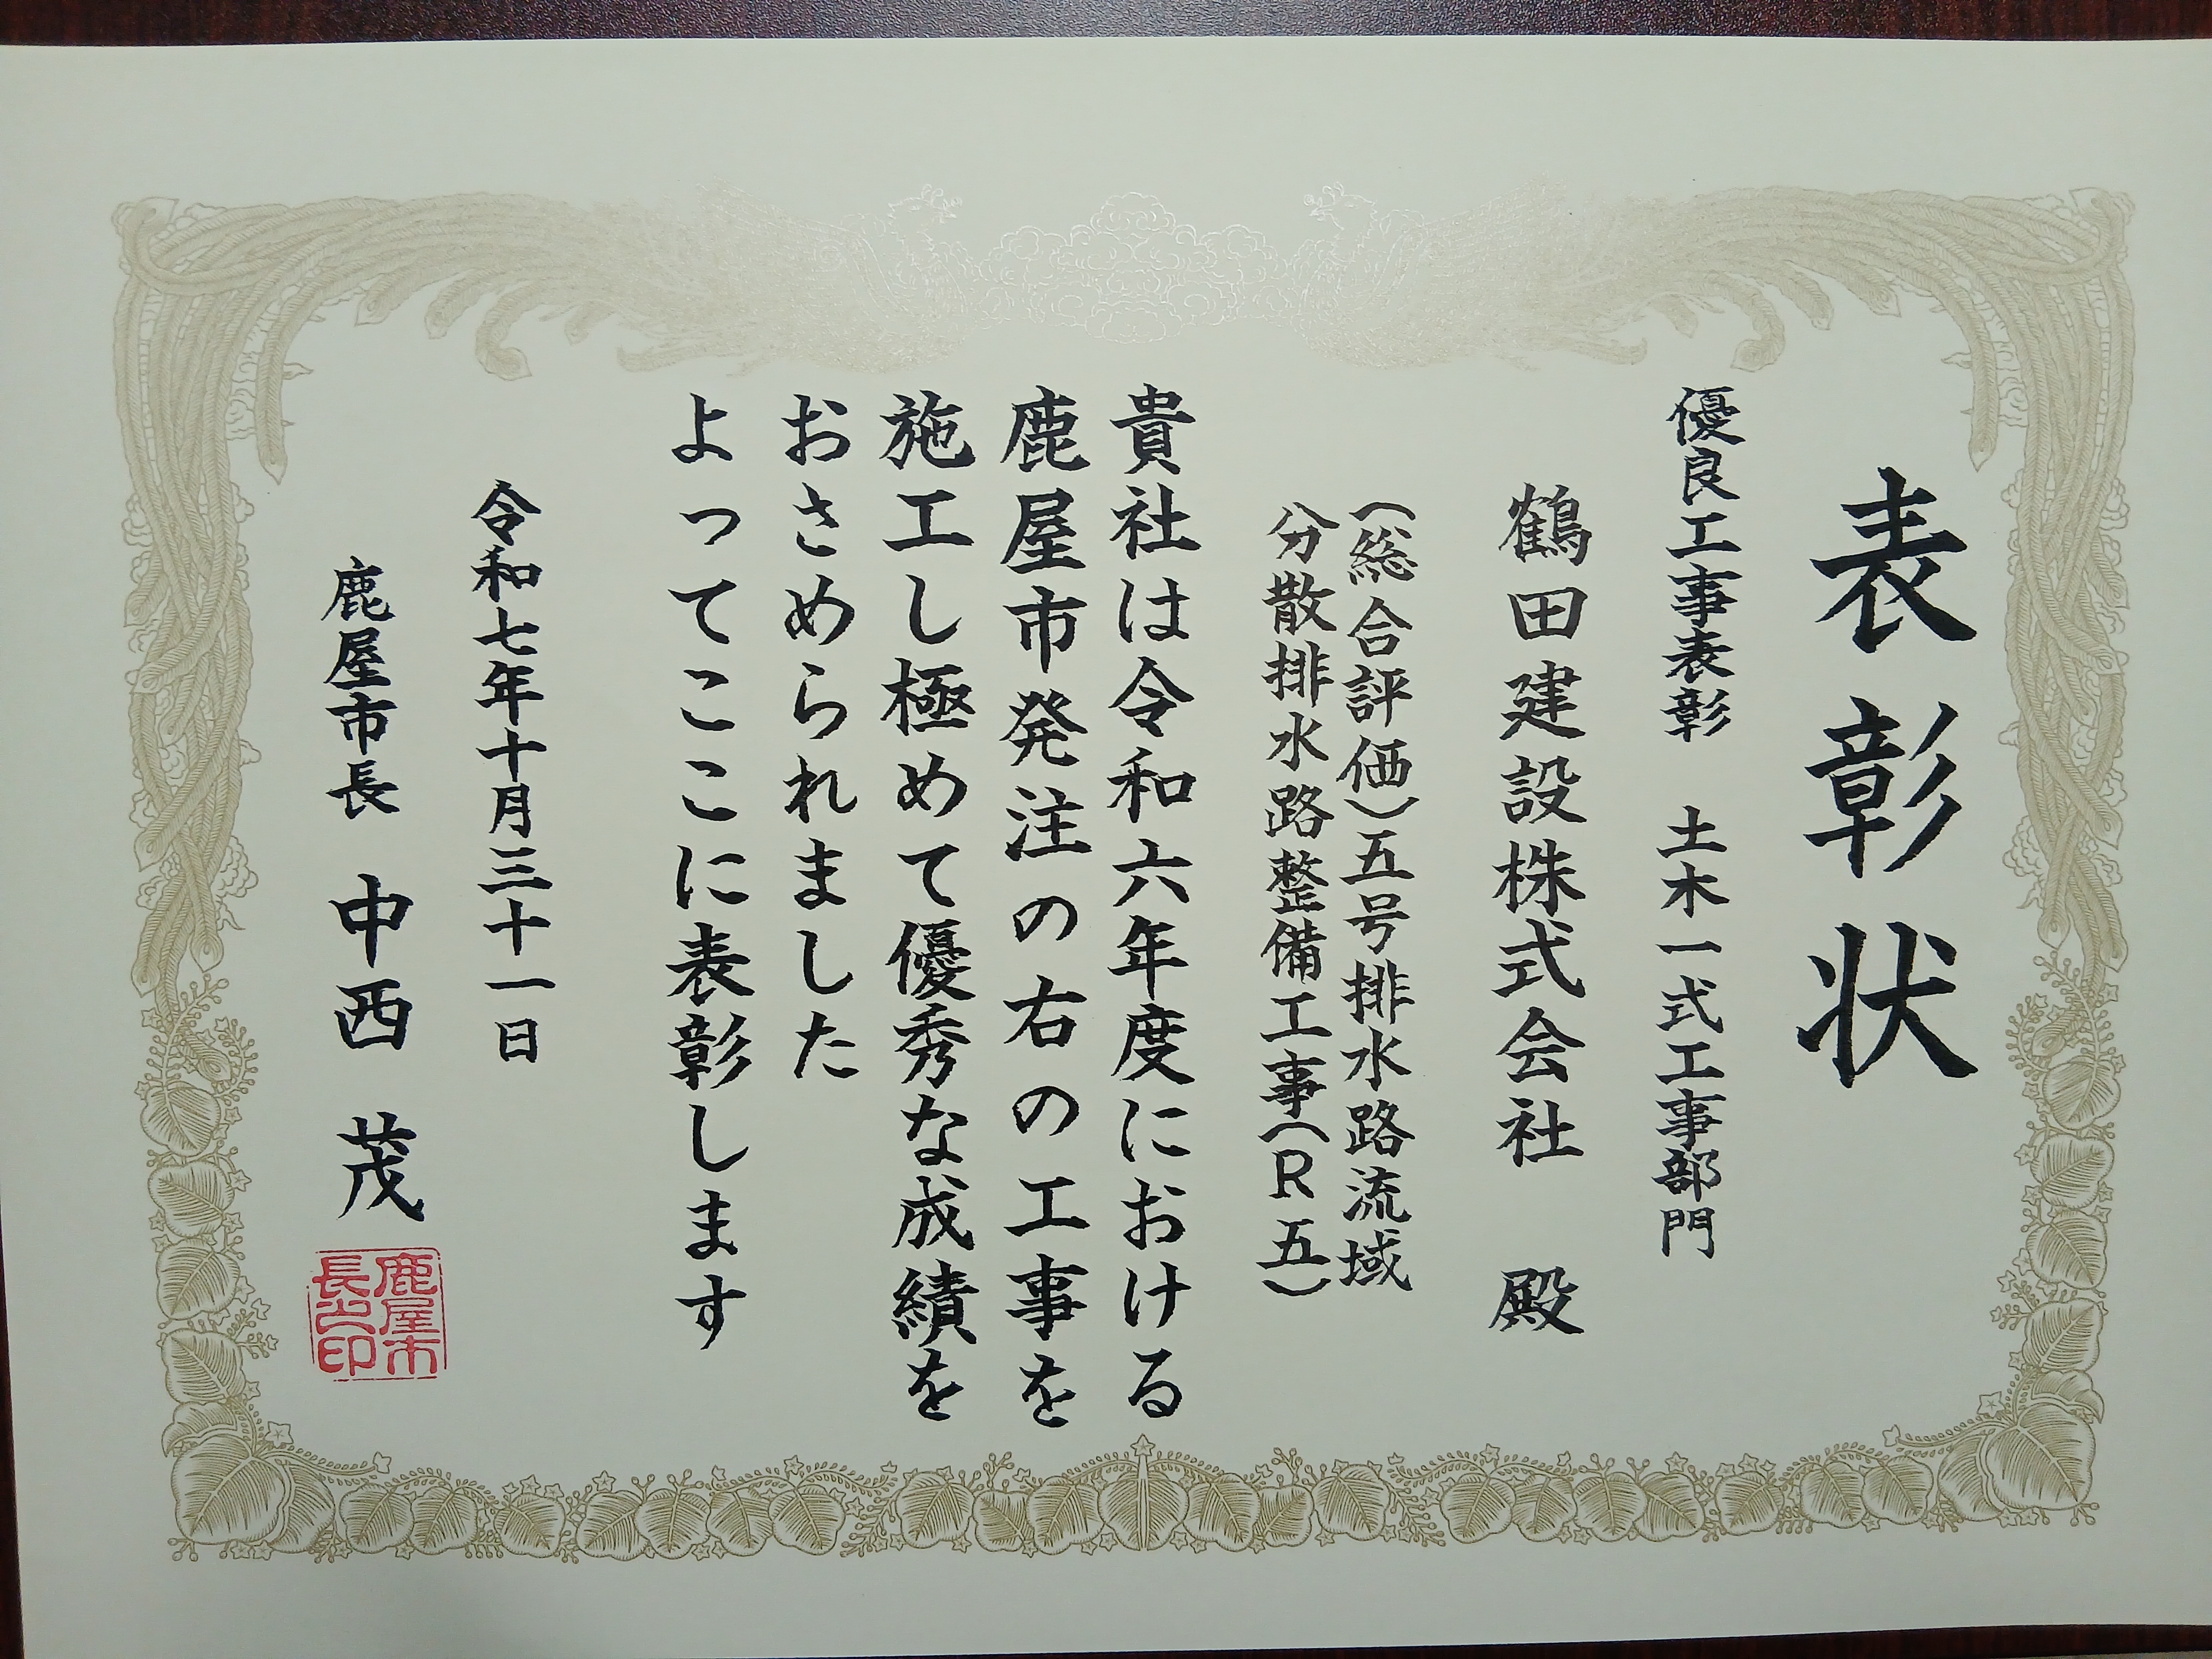 表彰状
優良工事表彰　土木一式工事部門
鶴田建設株式会社　殿
（総合評価）五号排水路流域
分散排水路整備工事（R五）
貴社は令和六年度における
鹿屋市発注の右の工事を
施工し極めて優秀な成績を
おさめられました
よってここに表彰します
令和七年十月三十一日
鹿屋市長　中西　茂
鹿屋市
長之印